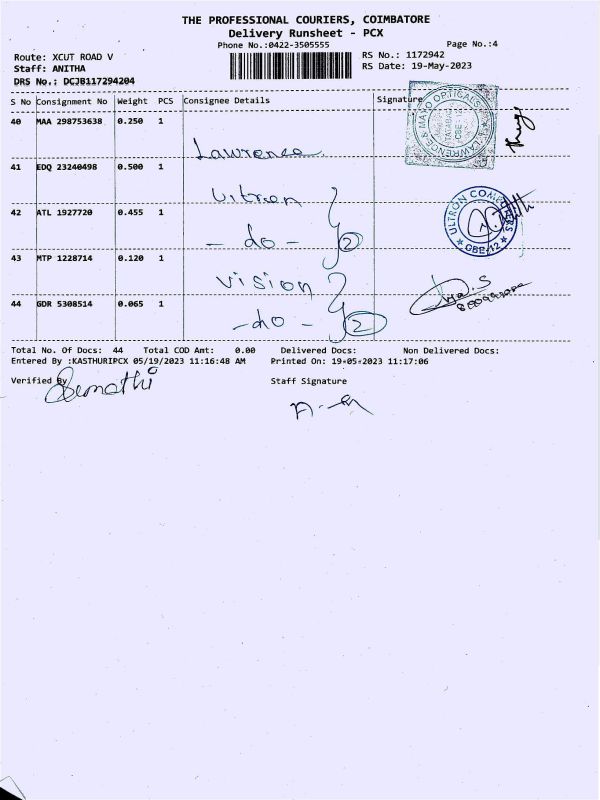 THE PROFESSIONAL COURIERS, COIMBATORE
Delivery Runsheet - PCX
Phone No.:0422-3505555 Page No.:4
Route: XCUT ROAD V RS No.: 1172942
Staff: ANITHA RS Date: 19-May-2023
DRS No.: DCJB117294204
S No Consignment No Weight PCS Consignee Details Signature
40 MAA 298753638 0.250 1
Lawrence
LAWRENCE & MAYO OPTICALS
41 EDQ 23240498 0.500 1
Ultron
ULTRON COMPUTERS
CBE-12
42 ATL 1927720 0.455 1
- do - 2
43 MTP 1228714 0.120 1
Vision
44 GDR 5308514 0.065 1
- do - 2
Total No. Of Docs: 44 Total COD Amt: 0.00 Delivered Docs: Non Delivered Docs:
Entered By :KASTHURIPCX 05/19/2023 11:16:48 AM Printed On: 19-05-2023 11:17:06
Verified By Staff Signature